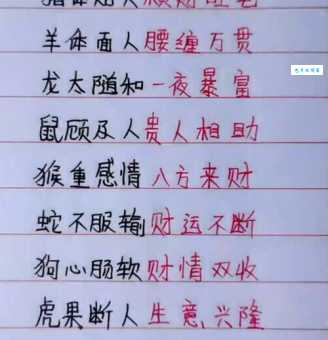 羊体面人腰缠万贯
龙太随和一夜暴富
鼠顾及人贵人相助
猴重感情八方来财
蛇不服输财运不断
狗心肠软财情双收
虎果断人生意兴隆